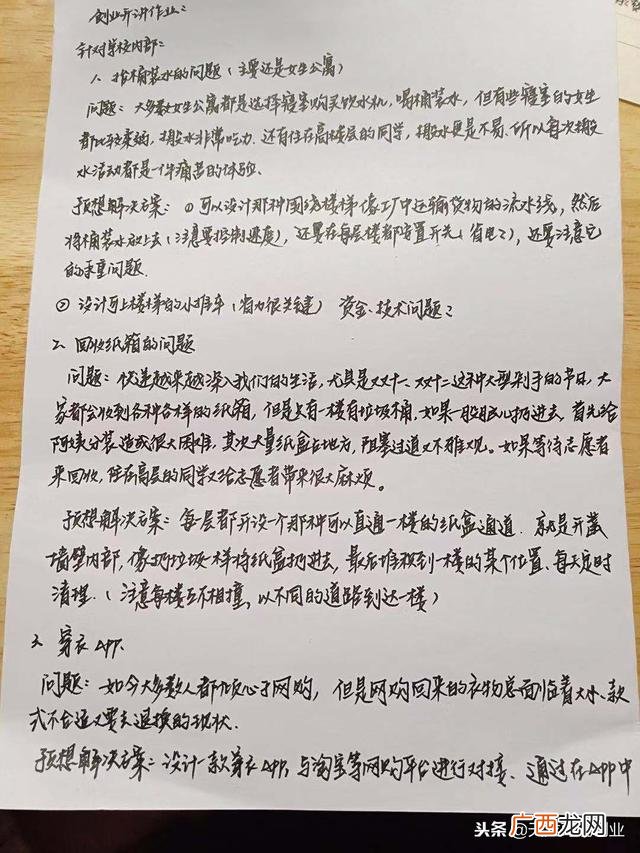 创业开讲作业:
针对学校内部:
1、抬桶装水的问题(主要还是女生公寓)
问题: 大多数女生公寓都是选择寝室购买饮水机,喝桶装水,但有些寝室的女生
都比较柔弱,搬水非常吃力,还有住在高楼层的同学,搬水更是不易,所以每次搬
水活动都是一件痛苦的体验、
预想解决方案: ①可以设计那种围绕楼梯像工厂中运输货物的流水线,然后
将桶装水放上去(注意要控制速度),还要在每层楼都设置开关(省电),还要注意它
的承重问题.
② 设计可上楼梯的小推车(省力很关键) 资金、技术问题?
2、回收纸箱的问题
问题: 快递越来越深入我们的生活,尤其是双十一、双十二这种大型剁手的节日,大
家都会收到各种各样的纸箱,但是只有一楼有垃圾桶,如果一股脑儿扔进去,首先给
阿姨分装造成很大困难,其次大量纸盒占地方,阻塞过道又不雅观。如果等待志愿者
来回收,住在高层的同学又给志愿者带来很大麻烦。
预想解决方案: 每层都开设一个那种可以直通一楼的纸盒通道、就是开凿
墙壁内部,像扔垃圾一样将纸盒扔进去,最后堆积到一楼的某个位置、每天定时
清理.(注意每楼互不相撞,以不同的道路到达一楼)
3、穿衣APP.
问题: 如今大多数人都倾心于网购,但是网购回来的衣物总面临着大小、款
式不合适又要去退换的现状.
预想解决方案: 设计一款穿衣APP,与淘宝等网购平台进行对接、通过在APP中
头条
广西龙网
业